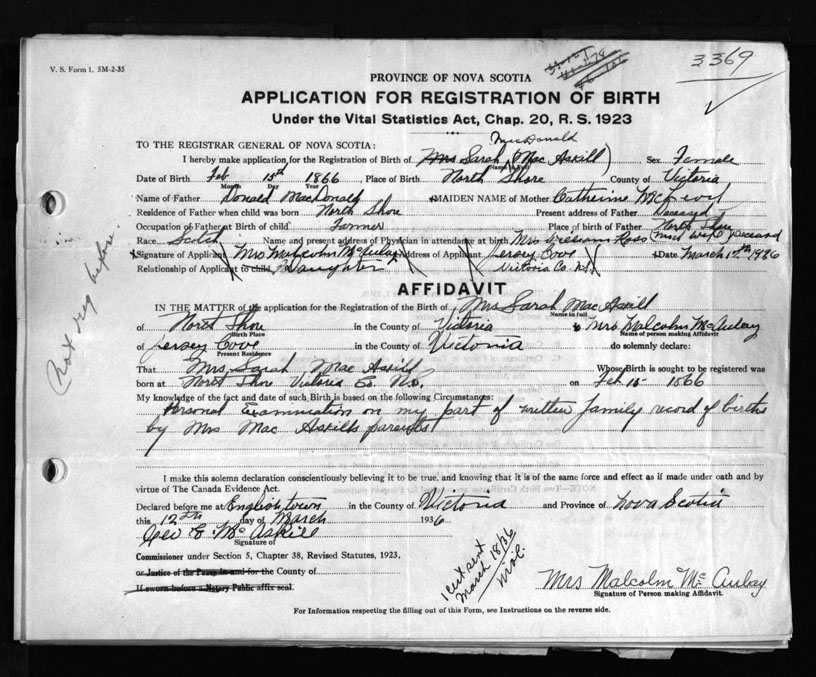 V. S. Form 1. 5M-2-35
3369
PROVINCE OF NOVA SCOTIA
APPLICATION FOR REGISTRATION OF BIRTH
Under the Vital Statistics Act, Chap. 20, R. S. 1923
TO THE REGISTRAR GENERAL OF NOVA SCOTIA:
MacDonald
I hereby make application for the Registration of Birth of Mrs Sarah (Mac Askill) Sex Female
Name in full
Date of Birth Feb 15th 1866, Place of Birth North Shore County of Victoria
Month Day Year
Name of Father Donald MacDonald MAIDEN NAME of Mother Catherine
Residence of Father when child was born North Shore Present address of Father Deceased
Occupation of Father at Birth Farmer Place of birth of Father North Shore
Race Scotch Name and present address of Physician in attendance at birth Mrs William Ross (mid wife) Deceased
Signature of Applicant Mrs Malcolm McAulay Address of Applicant Jersey Cove Date March 1936
Relationship of Applicant to child Daughter Victoria Co. N.S.
AFFIDAVIT
IN THE MATTER of the application for the Registration of the Birth of Mrs Sarah Mac Askill
Name in full
of North Shore in the County of Victoria Mrs Malcolm McAulay
Birth Place Name of person making Affidavit
of Jersey Cove in the County of Victoria do solemnly declare:
Present Residence
That Mrs Sarah Mac Askill Whose Birth is sought to be registered was
born at North Shore Victoria Co. N.S. on Feb 15 1866
My knowledge of the fact and date of such Birth is based on the following Circumstances:
Personal Examination on my part of written family record of births
by Mrs Mac Askills parents
I make this solemn declaration conscientiously believing it to be true, and knowing that it is of the same force and effect as if made under oath and by
virtue of The Canada Evidence Act.
Declared before me at Englishtown in the County of Victoria and Province of Nova Scotia
this 12th day of March 1936
Geo E. McAskill
Signature of
Commissioner under Section 5, Chapter 38, Revised Statutes, 1923,
or Justice of the Peace in and for the County of
If sworn before a Notary Public affix seal.
1 cert sent
March 18/36
Mrs Malcolm McAulay
Signature of Person making Affidavit.
For Information respecting the filling out of this Form, see Instructions on the reverse side.
Not reg before.